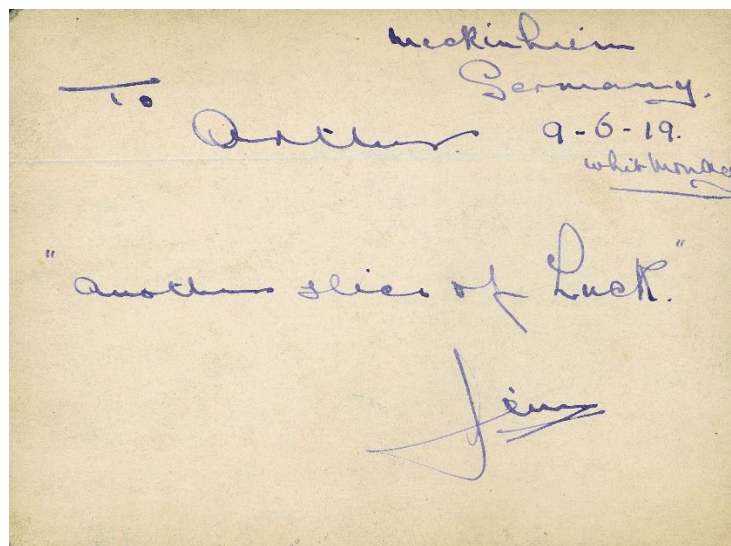 Meckinheim
Germany.
To Arthur 9-6-19.
Whit Monday
"Another slice of Luck."
Jim